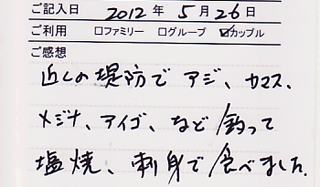 ご記入日 2012年5月26日
ご利用 □ファミリー □グループ ☑カップル
ご感想
近くの堤防で アジ、カマス、
メジナ、アイゴ、など 釣って
塩焼、刺身で食べました。